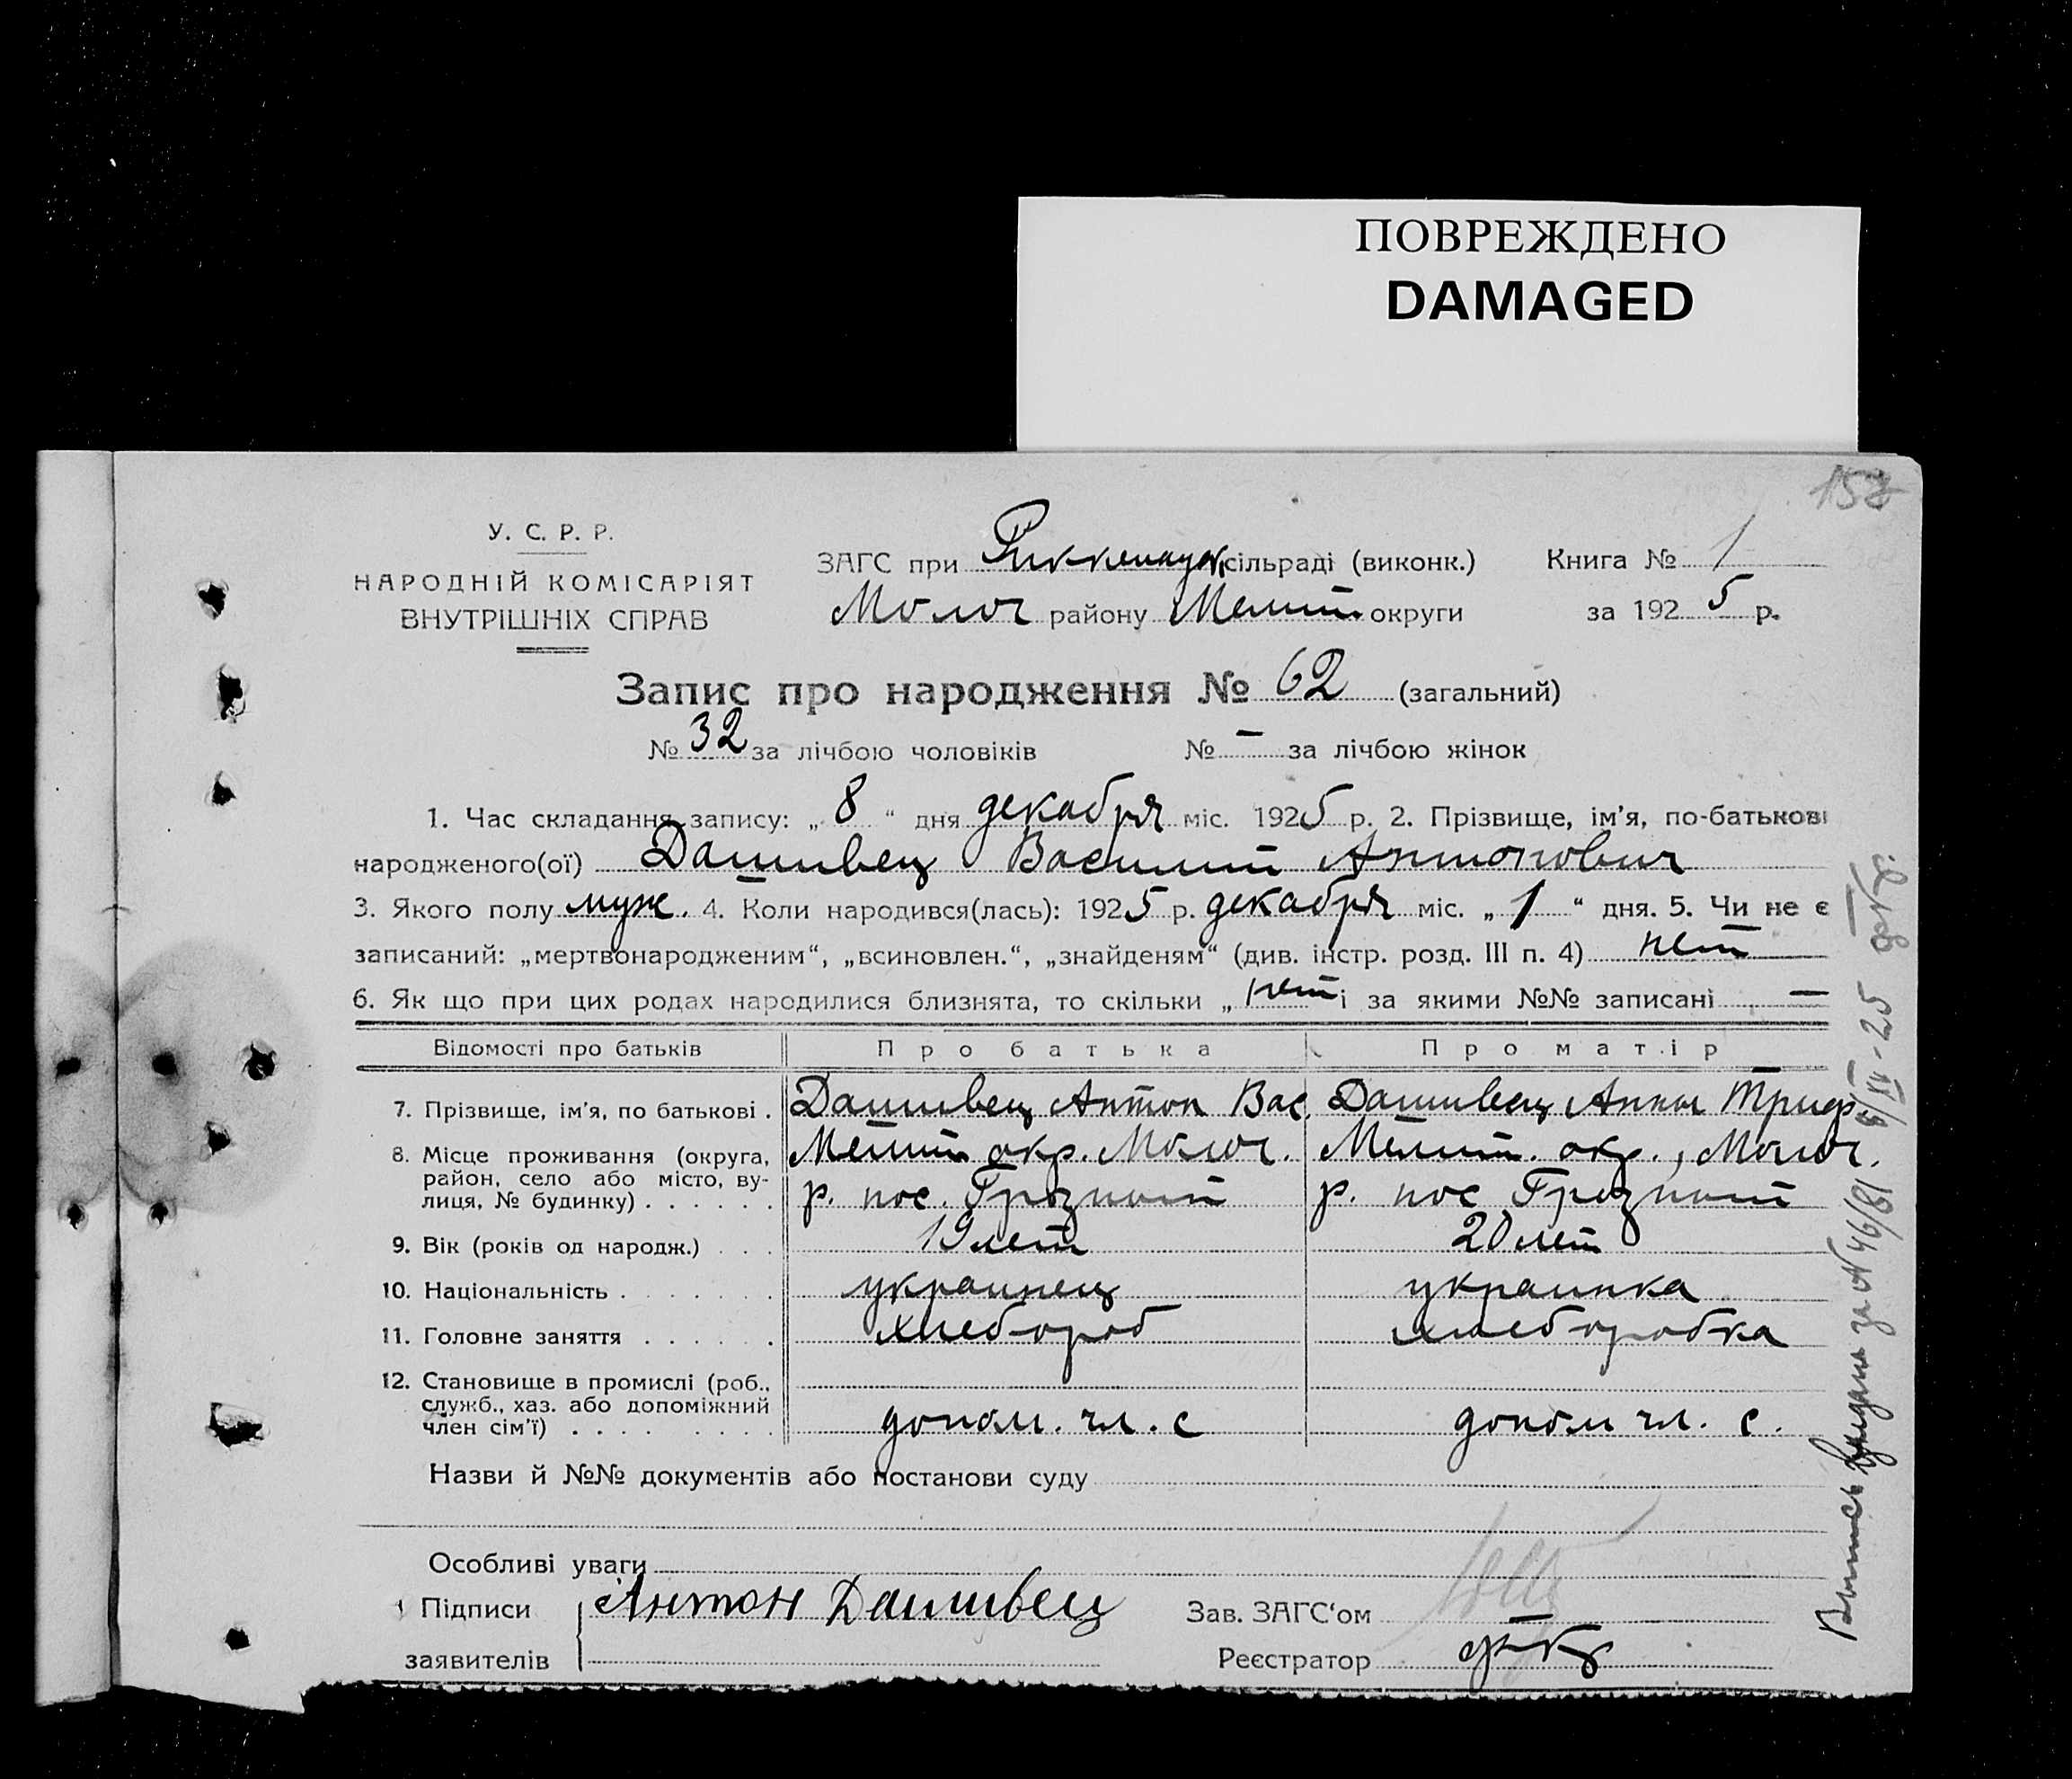 ПОВРЕЖДЕНО
DAMAGED
У. С. Р. Р.
НАРОДНІЙ КОМІСАРІЯТ
ВНУТРІШНІХ СПРАВ
ЗАГС при Риккенауск. сільраді (виконк.)
Молоч району Мелит. округи
Книга № 1
за 1925 р.
Запис про народження № 62 (загальний)
№ 32 за лічбою чоловіків № — за лічбою жінок
1. Час складання запису: „ 8 “ дня декабря міс. 1925 р. 2. Прізвище, ім’я, по-батькові
народженого(ої) Дашивец Василий Антонович
3. Якого полу муж. 4. Коли народився(лась): 1925 р. декабря міс. „ 1 “ дня. 5. Чи не є
записаний: „мертвонародженим“, „всиновлен.“, „знайденям“ (див. інстр. розд. III п. 4) нет
6. Як що при цих родах народилися близнята, то скільки „ нет і за якими №№ записані —
Відомості про батьків Про батька Про матір
7. Прізвище, ім’я, по батькові . Дашивец Антон Вас. Дашивец Анна Триф.
8. Місце проживання (округа, Мелит окр. Молоч. Мелит. окр., Молоч.
район, село або місто, ву-
лиця, № будинку) . . . . . . р. пос. Грозный р. пос Грозный
9. Вік (років од народж.) . . . 19 лет 20 лет
10. Національність . . . . . . . украинец украинка
11. Головне заняття . . . . . . хлебороб хлеборобка
12. Становище в промислі (роб.,
служб., хаз. або допоміжний
член сім’ї) . . . . . . . . допом. чл. с допом чл. с.
Назви й №№ документів або постанови суду
Особливі уваги
Підписи Антон Дашивец
заявителів
Зав. ЗАГС‘ом
Реєстратор
Выпись выдана за № 46/81 8/XII-25